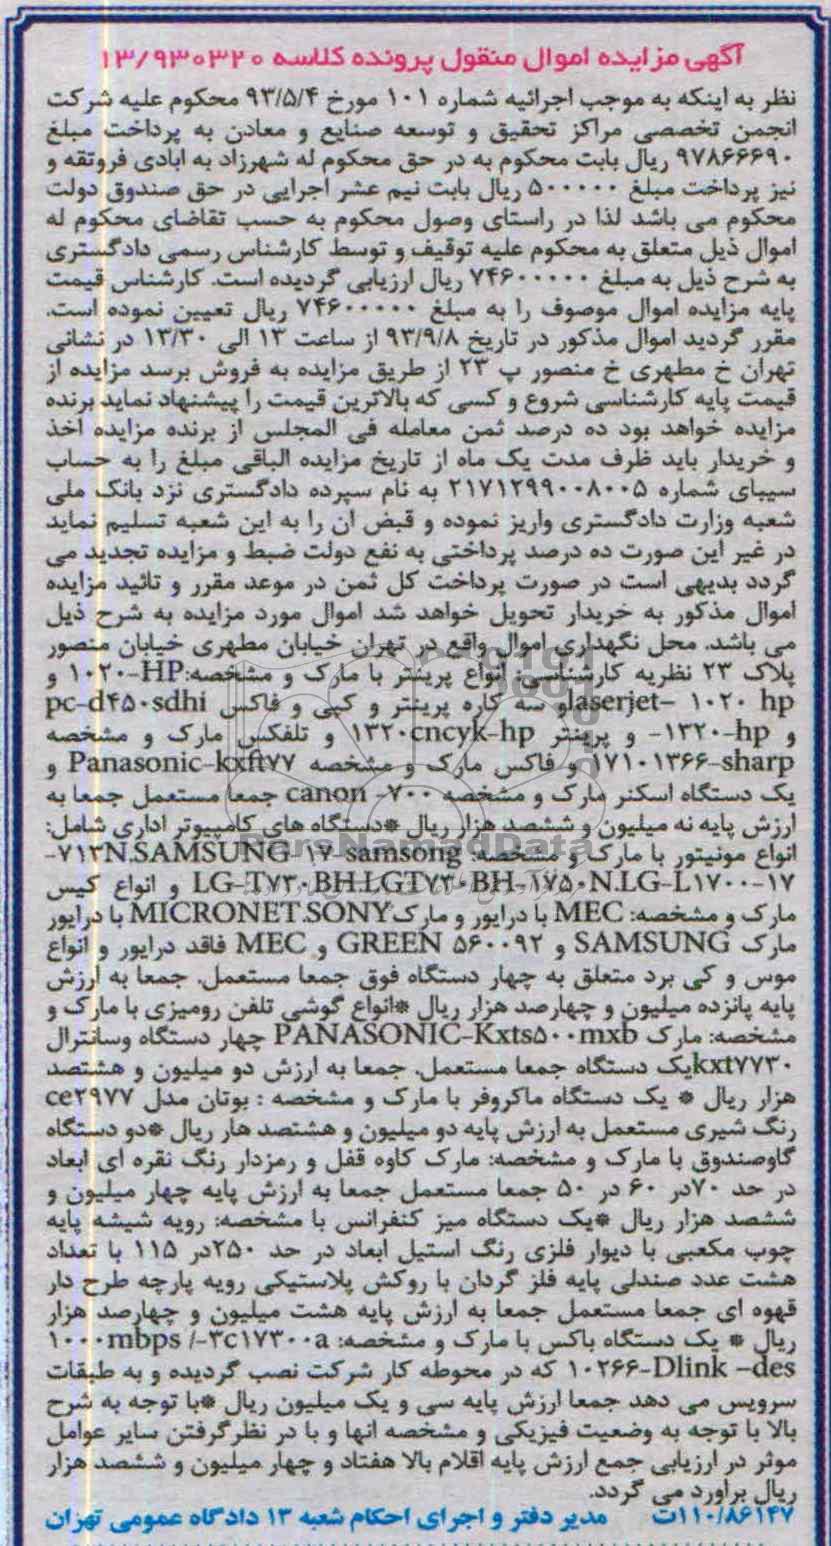 آگهی مزایده اموال منقول پرونده کلاسه ۱۳/۹۳۰۳۲۰
نظر به اینکه به موجب اجرائیه شماره ۱۰۱ مورخ ۹۳/۵/۴ محکوم علیه شرکت
انجمن تخصصی مراکز تحقیق و توسعه صنایع و معادن به پرداخت مبلغ
۹۷۸۶۶۶۹۰ ریال بابت محکوم به در حق محکوم له شهرزاد به ابادی فروتقه و
نیز پرداخت مبلغ ۵۰۰۰۰۰۰ ریال بابت نیم عشر اجرایی در حق صندوق دولت
محکوم می باشد لذا در راستای وصول محکوم به حسب تقاضای محکوم له
اموال ذیل متعلق به محکوم علیه توقیف و توسط کارشناس رسمی دادگستری
به شرح ذیل به مبلغ ۷۴۶۰۰۰۰۰ ریال ارزیابی گردیده است. کارشناس قیمت
پایه مزایده اموال موصوف را به مبلغ ۷۴۶۰۰۰۰۰ ریال تعیین نموده است.
مقرر گردید اموال مذکور در تاریخ ۹۳/۹/۸ از ساعت ۱۳ الی ۱۳/۳۰ در نشانی
تهران خ مطهری خ منصور پ ۲۳ از طریق مزایده به فروش برسد مزایده از
قیمت پایه کارشناسی شروع و کسی که بالاترین قیمت را پیشنهاد نماید برنده
مزایده خواهد بود ده درصد ثمن معامله فی المجلس از برنده مزایده اخذ
و خریدار باید ظرف مدت یک ماه از تاریخ مزایده الباقی مبلغ را به حساب
سیبای شماره ۲۱۷۱۲۹۹۰۰۸۰۰۵ به نام سپرده دادگستری نزد بانک ملی
شعبه وزارت دادگستری واریز نموده و قبض ان را به این شعبه تسلیم نماید
در غیر این صورت ده درصد پرداختی به نفع دولت ضبط و مزایده تجدید می
گردد بدیهی است در صورت پرداخت کل ثمن در موعد مقرر و تائید مزایده
اموال مذکور به خریدار تحویل خواهد شد اموال مورد مزایده به شرح ذیل
می باشد. محل نگهداری اموال واقع در تهران خیابان مطهری خیابان منصور
پلاک ۲۳ نظریه کارشناسی: انواع پرینتر با مارک و مشخصه:HP-۱۰۲۰ و
laserjet- ۱۰۲۰ hpو سه کاره پرینتر و کپی و فاکس pc-d۴۵۰sdhi
و hp-۱۳۲۰- و پرینتر ۱۳۲۰cncyk-hp و تلفکس مارک و مشخصه
sharp-۱۷۱۰۱۳۶۶ و فاکس مارک و مشخصه Panasonic-kxft۷۷ و
یک دستگاه اسکنر مارک و مشخصه canon -۷۰۰ جمعا مستعمل جمعا به
ارزش پایه نه میلیون و ششصد هزار ریال *دستگاه های کامپیوتر اداری شامل:
انواع مونیتور با مارک و مشخصه: ۷۱۳N.SAMSUNG-۱۷-samsong-
LG-T۷۳۰.BH.LGT۷۳۰BH-۱۷۵۰N.LG-L۱۷۰۰-۱۷ و انواع کیس
مارک و مشخصه: MEC با درایور و مارکMICRONET.SONY با درایور
مارک SAMSUNG و GREEN ۵۶۰۰۹۲ و MEC فاقد درایور و انواع
موس و کی برد متعلق به چهار دستگاه فوق جمعا مستعمل. جمعا به ارزش
پایه پانزده میلیون و چهارصد هزار ریال *انواع گوشی تلفن رومیزی با مارک و
مشخصه: مارک PANASONIC-Kxts۵۰۰mxb چهار دستگاه وسانترال
kxt۷۷۳۰یک دستگاه جمعا مستعمل. جمعا به ارزش دو میلیون و هشتصد
هزار ریال * یک دستگاه ماکروفر با مارک و مشخصه : بوتان مدل ce۲۹۷۷
رنگ شیری مستعمل به ارزش پایه دو میلیون و هشتصد هار ریال *دو دستگاه
گاوصندوق با مارک و مشخصه: مارک کاوه قفل و رمزدار رنگ نقره ای ابعاد
در حد ۷۰در ۶۰ در ۵۰ جمعا مستعمل جمعا به ارزش پایه چهار میلیون و
ششصد هزار ریال *یک دستگاه میز کنفرانس با مشخصه: رویه شیشه پایه
چوب مکعبی با دیوار فلزی رنگ استیل ابعاد در حد ۲۵۰در ۱۱۵ با تعداد
هشت عدد صندلی پایه فلز گردان با روکش پلاستیکی رویه پارچه طرح دار
قهوه ای جمعا مستعمل جمعا به ارزش پایه هشت میلیون و چهارصد هزار
ریال * یک دستگاه باکس با مارک و مشخصه: ۱۰۰۰mbps /-۳c۱۷۳۰۰a
۱۰۲۶۶-Dlink -des که در محوطه کار شرکت نصب گردیده و به طبقات
سرویس می دهد جمعا ارزش پایه سی و یک میلیون ریال *با توجه به شرح
بالا با توجه به وضعیت فیزیکی و مشخصه انها و با در نظرگرفتن سایر عوامل
موثر در ارزیابی جمع ارزش پایه اقلام بالا هفتاد و چهار میلیون و ششصد هزار
ریال براورد می گردد.
۱۱۰/۸۶۱۴۷ت مدیر دفتر و اجرای احکام شعبه ۱۳ دادگاه عمومی تهران
ParsNamadData